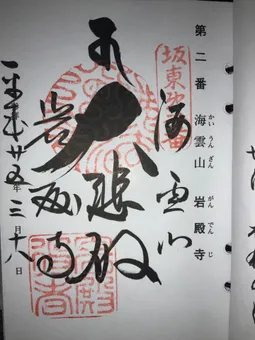 第二番 海雲山 岩殿寺
かいうんざん がんでんじ
坂東第二番
海雲山
大悲殿
岩殿寺
平成廿五年三月十八日